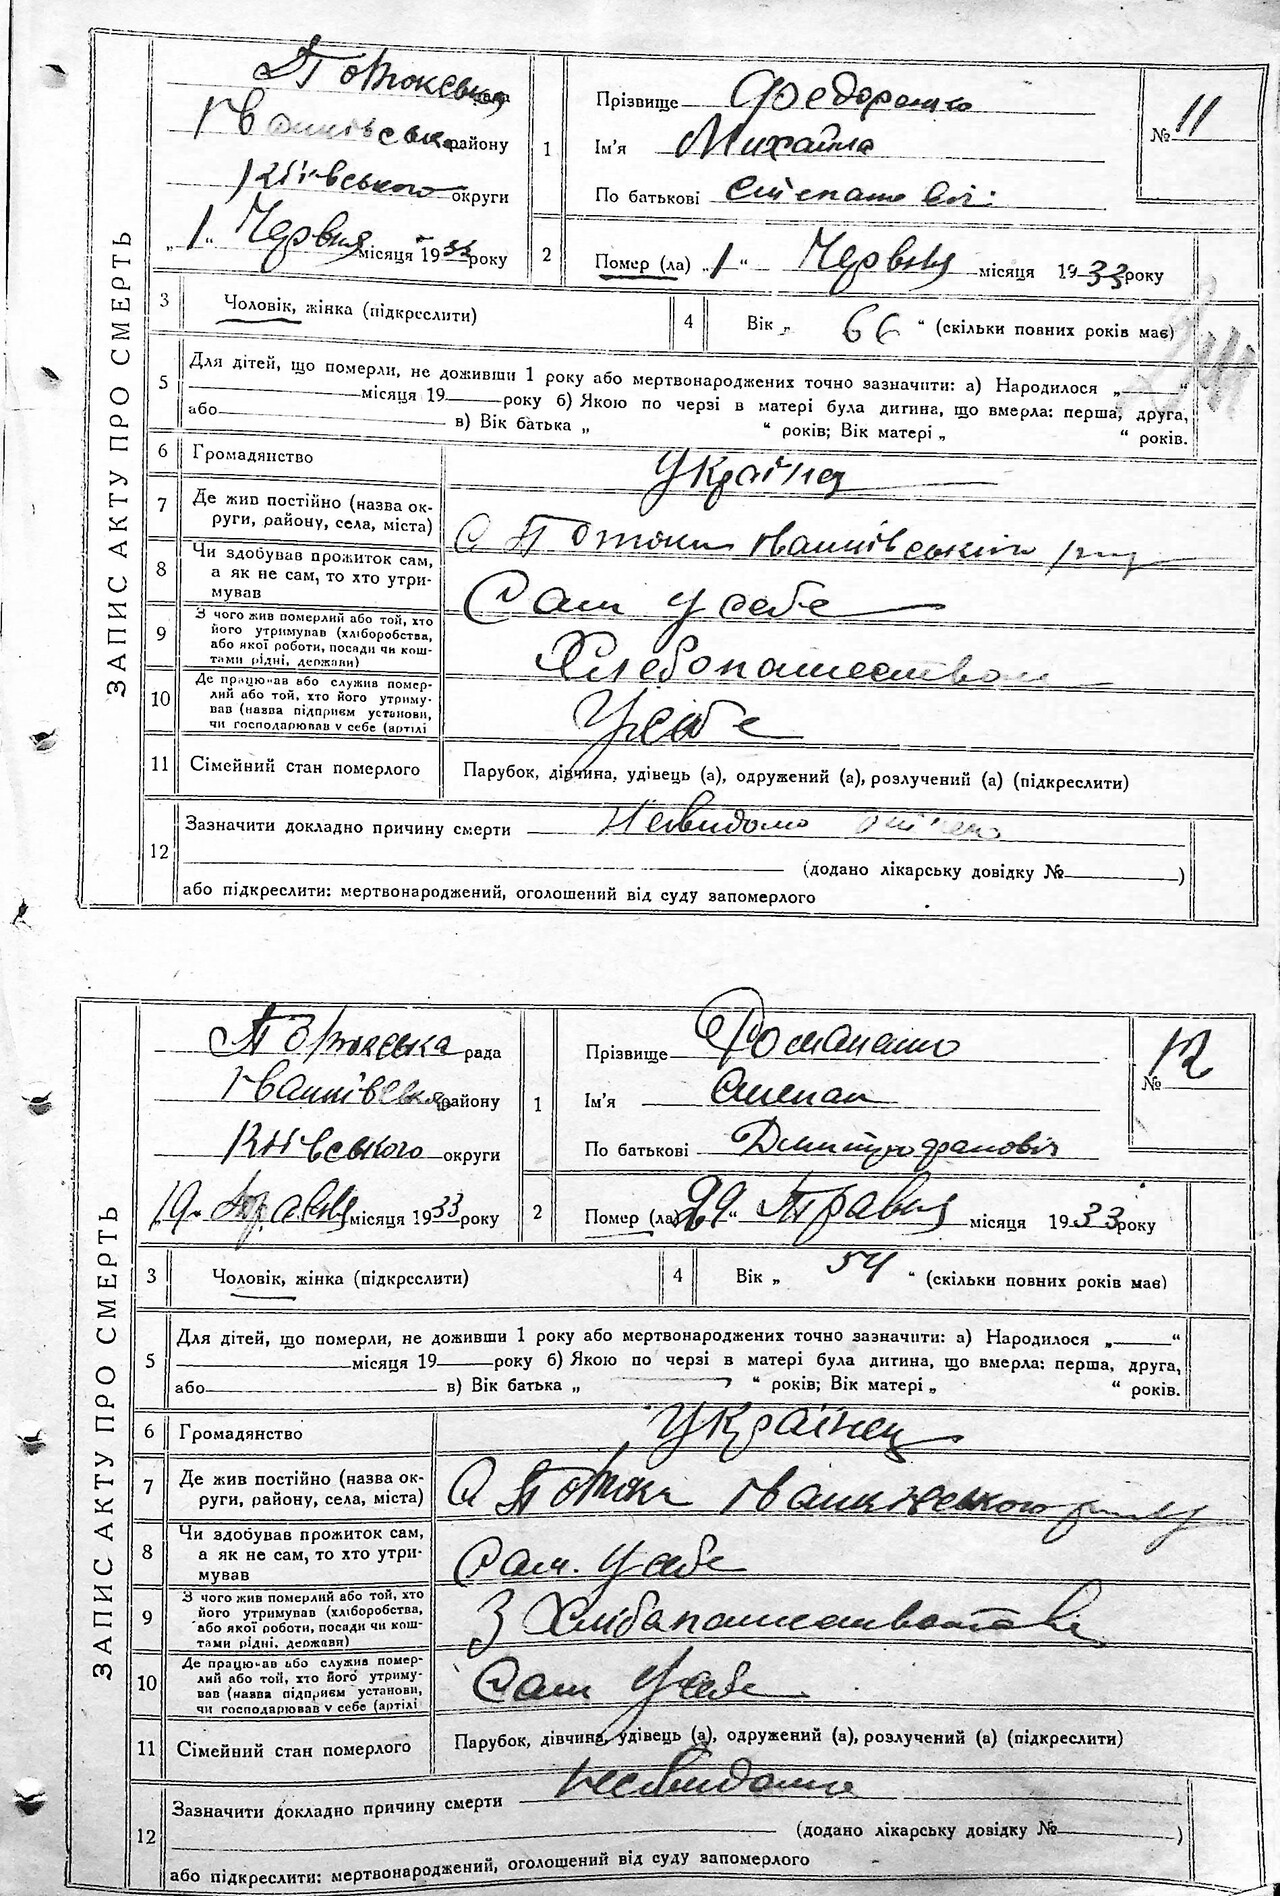 ЗАПИС АКТУ ПРО СМЕРТЬ
Потокська
Іванківська району
Київського округи
„1“ Червня місяця 1933 року
1
Прізвище Федоренко
Ім'я Михайло
По батькові Степанович
№ 11
2
Помер (ла) „1“ Червня місяця 1933 року
3
Чоловік, жінка (підкреслити)
4
Вік „ 66 “ (скільки повних років має)
5
Для дітей, що померли, не доживши 1 року або мертвонароджених точно зазначити: а) Народилося „ “
місяця 19 року б) Якою по черзі в матері була дитина, що вмерла: перша, друга,
або в) Вік батька „ “ років; Вік матері „ “ років.
6
Громадянство Українец
7
Де жив постійно (назва ок-
руги, району, села, міста)
С Потоки Іванківського
8
Чи здобував прожиток сам,
а як не сам, то хто утри-
мував
Сам у себе
9
З чого жив померлий або той, хто
його утримував (хліборобства,
або якої роботи, посади чи кош-
тами рідні, держави)
Хлебопашеством
10
Де працював або служив помер-
лий або той, хто його утриму-
вав (назва підприєм установи,
чи господарював у себе (артілі
У себе
11
Сімейний стан померлого
Парубок, дівчина, удівець (а), одружений (а), розлучений (а) (підкреслити)
12
Зазначити докладно причину смерти Невидомо
(додано лікарську довідку № )
або підкреслити: мертвонароджений, оголошений від суду запомерлого
ЗАПИС АКТУ ПРО СМЕРТЬ
Потокська рада
Іванківська району
Київського округи
19 Травня місяця 1933 року
1
Прізвище Романенко
Ім'я Степан
По батькові
№ 12
2
Помер (ла) “ Травня місяця 1933 року
3
Чоловік, жінка (підкреслити)
4
Вік „ 54 “ (скільки повних років має)
5
Для дітей, що померли, не доживши 1 року або мертвонароджених точно зазначити: а) Народилося „ “
місяця 19 року б) Якою по черзі в матері була дитина, що вмерла: перша, друга,
або в) Вік батька „ “ років; Вік матері „ “ років.
6
Громадянство Українец
7
Де жив постійно (назва ок-
руги, району, села, міста)
С Потоки Іванківського району
8
Чи здобував прожиток сам,
а як не сам, то хто утри-
мував
Сам у себе
9
З чого жив померлий або той, хто
його утримував (хліборобства,
або якої роботи, посади чи кош-
тами рідні, держави)
З
10
Де працював або служив помер-
лий або той, хто його утриму-
вав (назва підприєм установи,
чи господарював у себе (артілі
Сам у себе
11
Сімейний стан померлого
Парубок, дівчина, удівець (а), одружений (а), розлучений (а) (підкреслити)
12
Зазначити докладно причину смерти Невидомо
(додано лікарську довідку № )
або підкреслити: мертвонароджений, оголошений від суду запомерлого